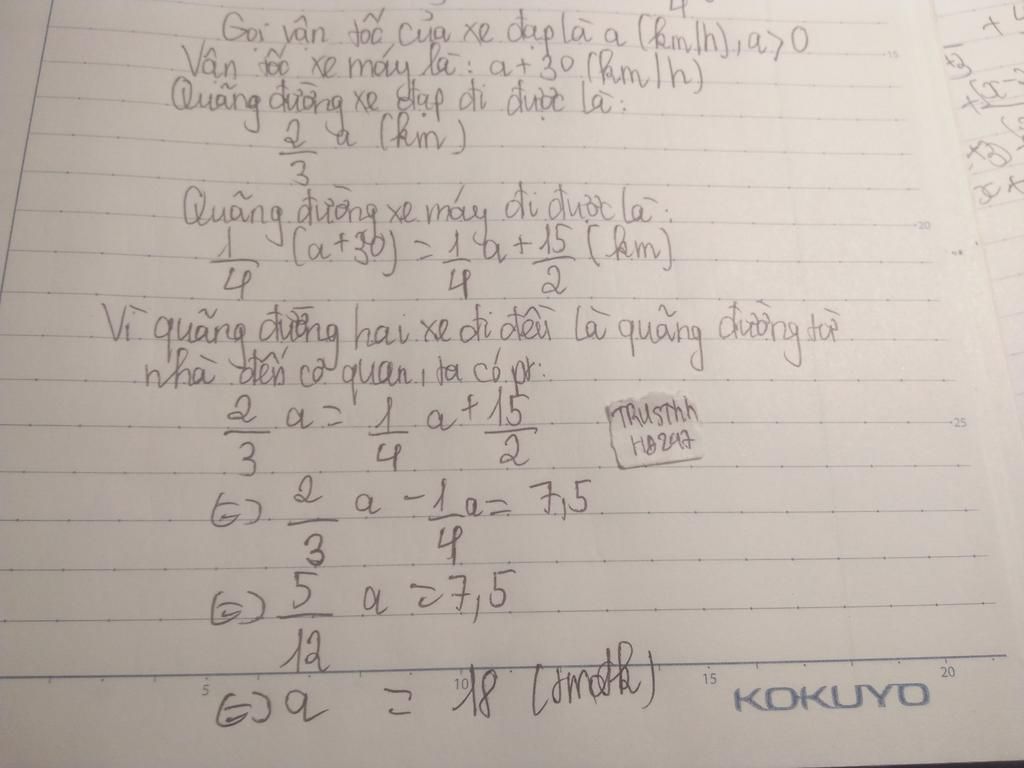 Gọi vận tốc của xe đạp là a (km/h), a>0
Vận tốc xe máy là: a+30 (km/h)
Quãng đường xe đạp đi được là:
2/3 a (km)
Quãng đường xe máy đi được là:
1/4 (a+30) = 1/4 a + 15/2 (km)
Vì quãng đường hai xe đi đều là quãng đường từ
nhà đến cơ quan, ta có pr:
2/3 a = 1/4 a + 15/2
TRUSTHH
HB247
⇔ 2/3 a - 1/4 a = 7,5
⇔ 5/12 a = 7,5
⇔ a = 18 (tmđk)
15
20
25
5
10
15
20
KOKUYO